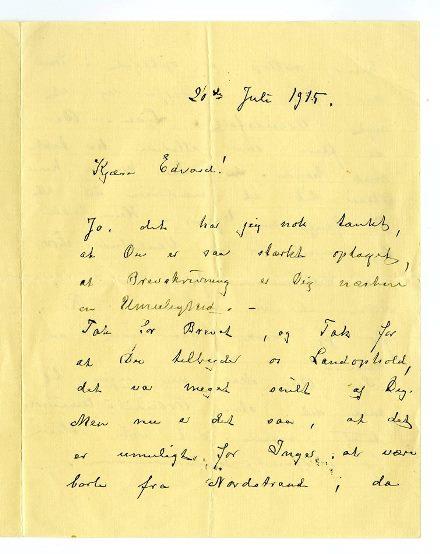 20de Juli 1915.
Kjære Edvard!
Jo, det har jeg nok tænkt,
at Du er saa stærkt optaget,
at Brevskrivning er Dig næsten
en Umulighed. –
Tak for Brevet, og Tak for
at Du tilbyder os Landophold,
det var meget snilt af Dig.
Men nu er det saa, at det
er umuligt for Inger at være
borte fra Nordstrand; da